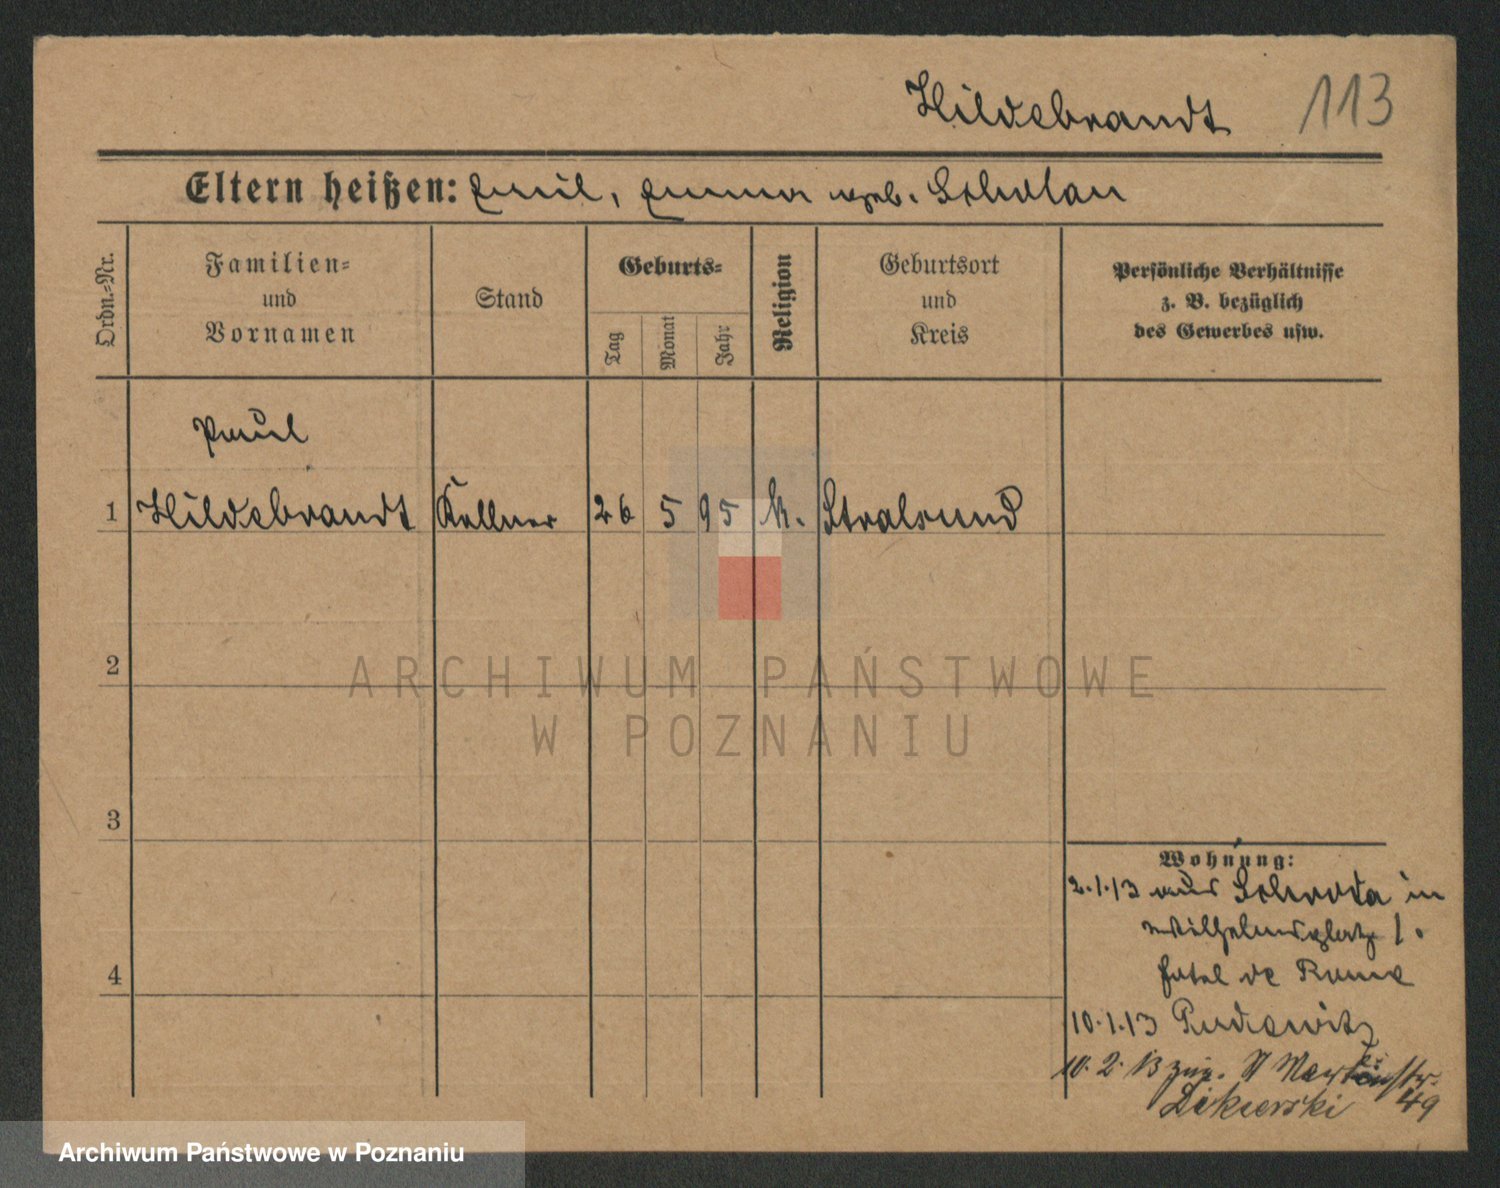 Hildebrandt 113
Eltern heißen: Emil, Emma geb. Scholau
Ordn.-Nr.
Familien-
und
Vornamen
Stand
Geburts-
Tag
Monat
Jahr
Religion
Geburtsort
und
Kreis
Persönliche Verhältnisse
z. B. bezüglich
des Gewerbes usw.
Paul
1 Hildebrandt Kellner 26 5 95 k. Stralsund
2
ARCHIWUM PAŃSTWOWE
W POZNANIU
3
Wohnung:
2.1.13 aus Schroda in
Wilhelmsplatz 1.
Hotel de Rome
4
10.1.13 Pudewitz
10.2.13 zur. St Martinstr.
49
Archiwum Państwowe w Poznaniu